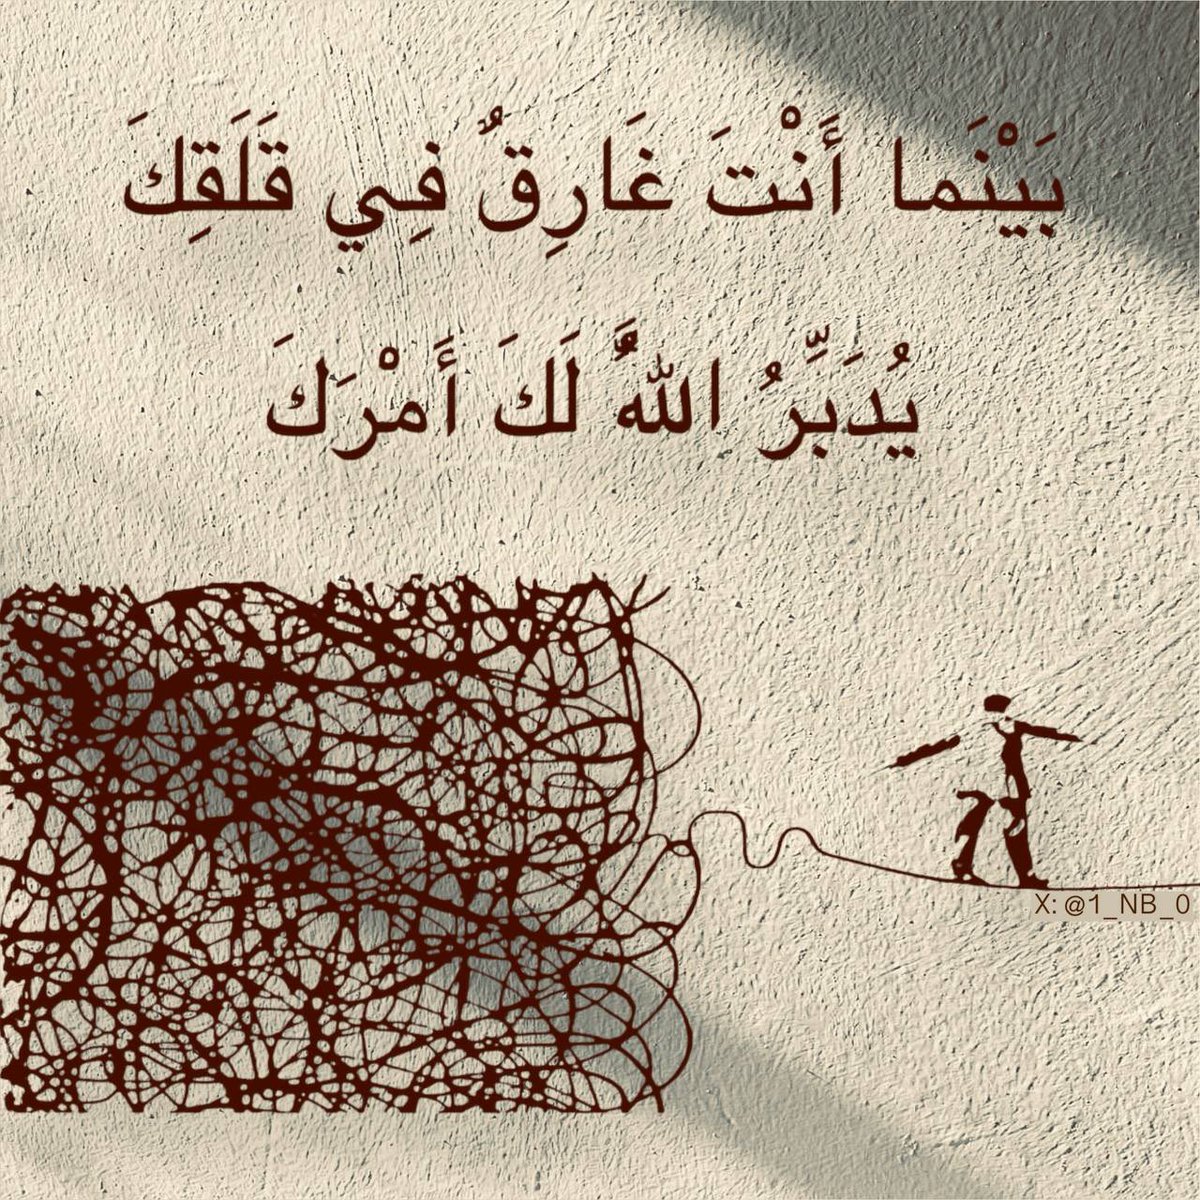 بَيْنَما أَنْتَ غَارِقٌ فِي قَلَقِكَ
يُدَبِّرُ اللهُ لَكَ أَمْرَكَ
X: @1_NB_0